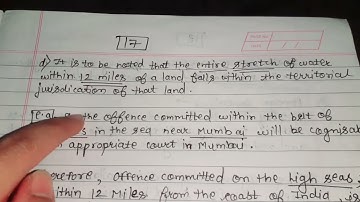 17
d) It is to be noted that the entire stretch of water
within 12 miles of a land falls within the territorial
jurisdication of that land.
E.g. the offence committed within the belt of
in the sea near Mumbai will be cognisa
appropriate court in Mumbai.
refore, offence committed on the high seas,
ithin 12 Miles from the coast of India, is